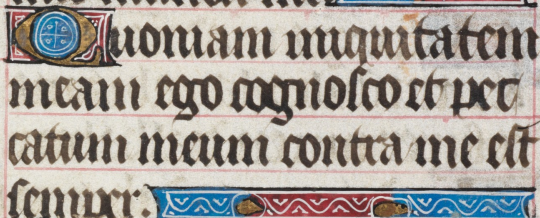 Quoniam iniquitatem
meam ego cognosco et pec
catum meum contra me est
semper.